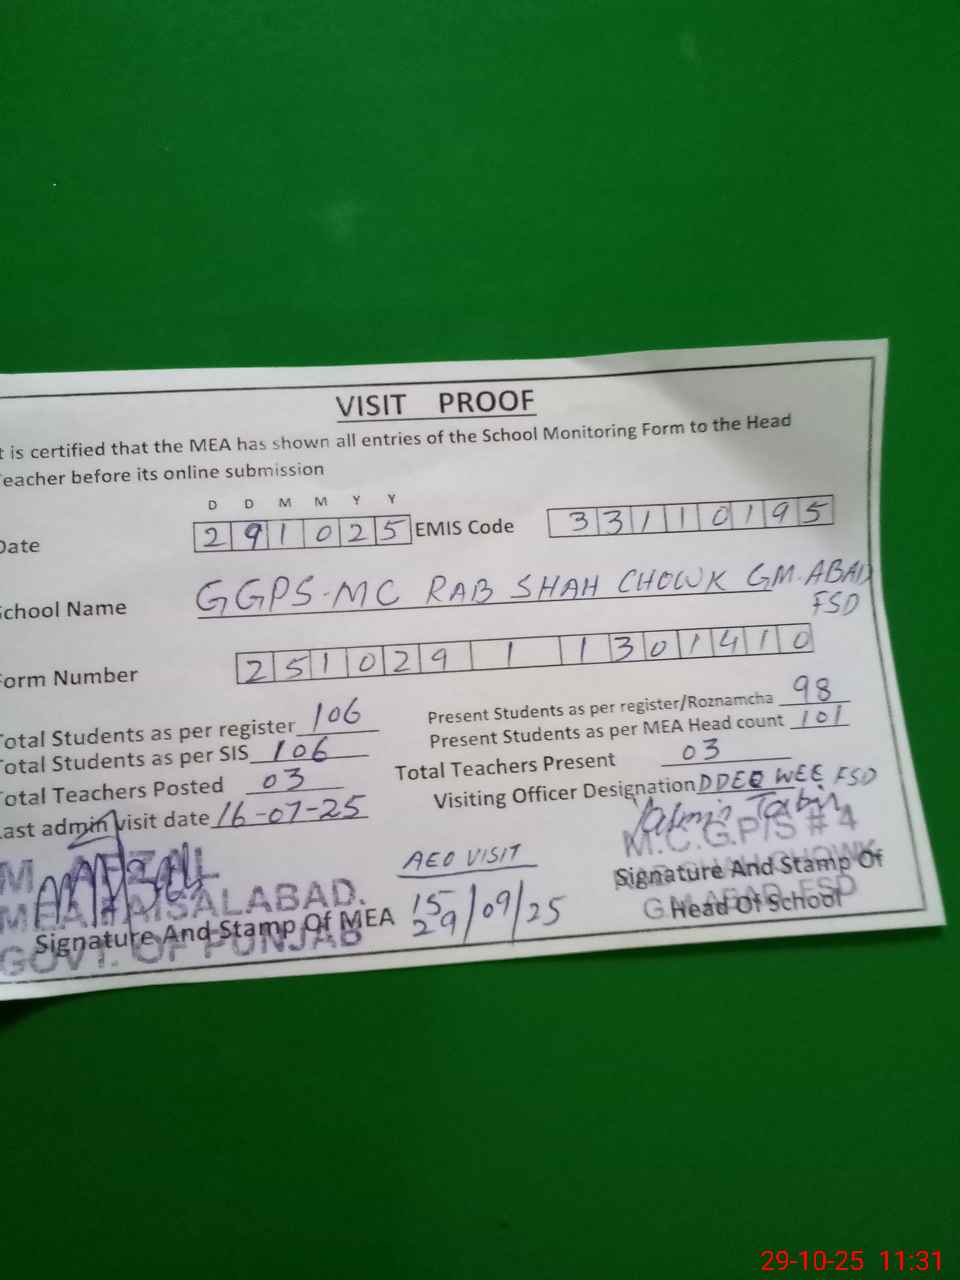 VISIT PROOF
t is certified that the MEA has shown all entries of the School Monitoring Form to the Head
eacher before its online submission
D D M M Y Y
Date 2 9 1 0 2 5 EMIS Code 3 3 1 1 0 1 9 5
chool Name GGPS-MC RAB SHAH CHOWK GM.ABAD
FSD
orm Number 2 5 1 0 2 9 1 1 3 0 1 4 1 0
otal Students as per register 106 Present Students as per register/Roznamcha 98
otal Students as per SIS 106 Present Students as per MEA Head count 101
otal Teachers Posted 03 Total Teachers Present 03
ast admin visit date 16-07-25 Visiting Officer Designation DDEO WEE FSD
M. AFZAL
MEA FAISALABAD.
GOVT. OF PUNJAB
Signature And Stamp Of MEA
AEO VISIT
15
29/09/25
M.C.G.P/S # 4
CHOWK
G.M. ABAD FSD
Signature And Stamp Of
Head Of School
29-10-25 11:31